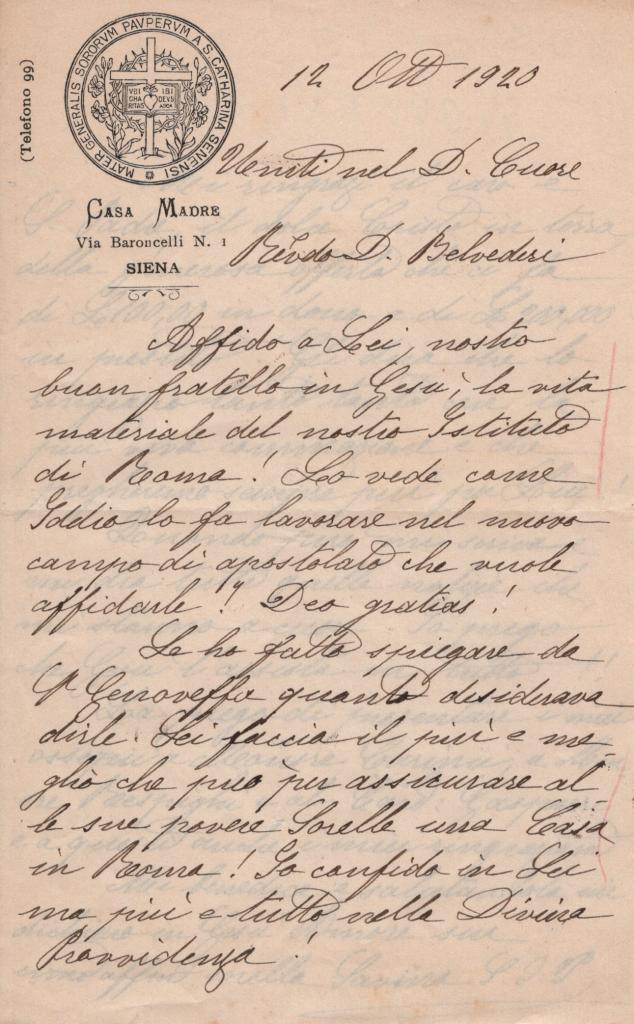 (Telefono 99)
MATER GENERALIS SORORVM PAVPERVM A S. CATHARINA SENENSI
VBI CHARITAS IBI DEVS
CASA MADRE
Via Baroncelli N. 1
SIENA
12 Ott 1920
Uniti nel D. Cuore
Revdo D. Belvederi
Affido a Lei, nostro
buon fratello in Gesù, la vita
materiale del nostro Istituto
di Roma! Lo vede come
Iddio lo fa lavorare nel nuovo
campo di apostolato che vuole
affidarle!! Deo gratias!
Le ho fatto spiegare da
Genoveffa quanto desiderava
dirle. Lei faccia il più e me-
glio che può per assicurare al-
le sue povere Sorelle una Casa
in Roma! Io confido in Lei
ma più e tutto nella Divina
Provvidenza!